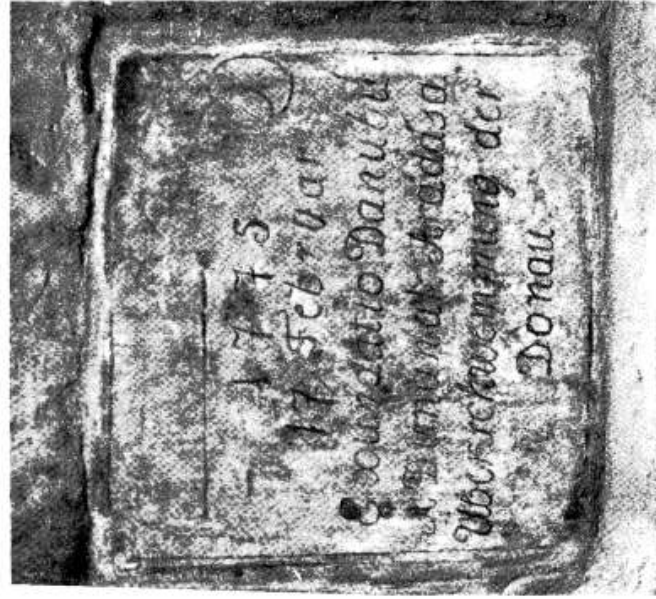 1775
17 Februar
Exoundatio Danubii
A Dunának Áradása
Überschwemmung der
Donau